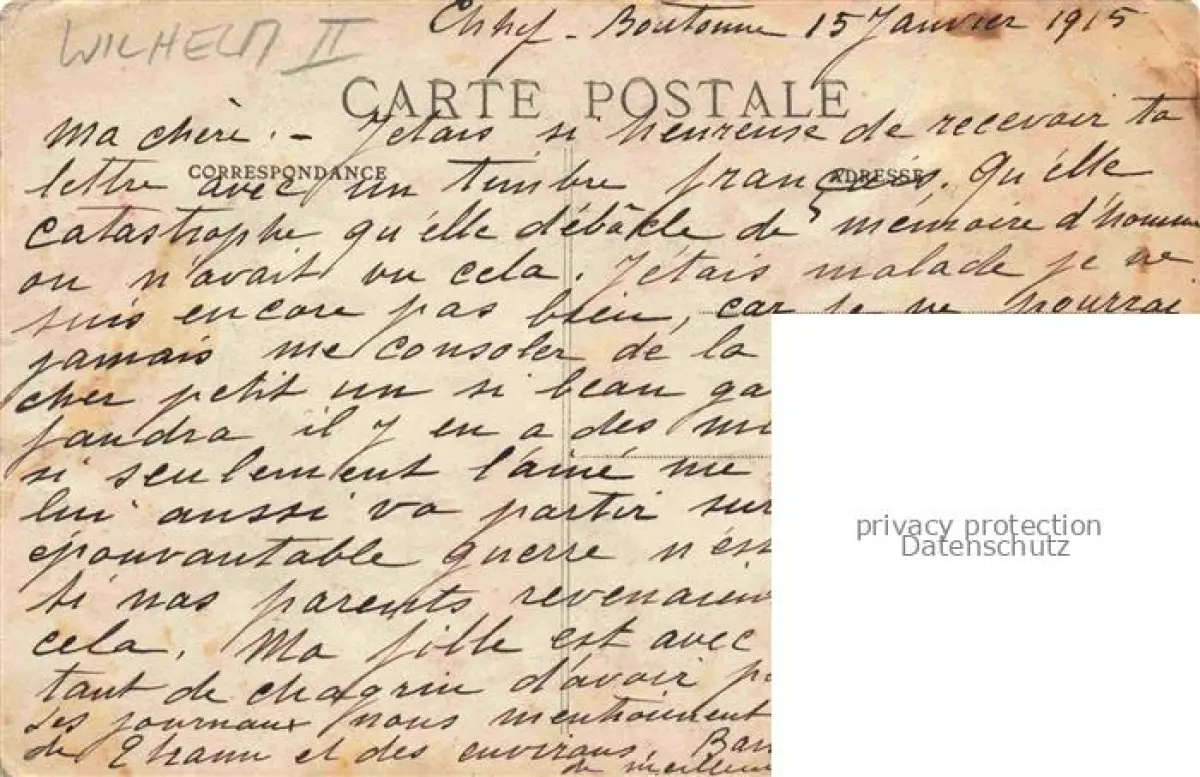 WILHELM II
Boutonne 15 Janvier 1915
CARTE POSTALE
Ma chère. – J'étais si heureuse de recevoir ta
CORRESPONDANCE ADRESSE
lettre avec un timbre français. Qu'elle
catastrophe qu'elle débâcle de mémoire d'homme
on n'avait vu cela. J'étais malade je ne
suis encore pas bien, car je ne pourrai
jamais me consoler de la
cher petit un si beau ga
faudra il y en a des mi
si seulement l'ainé me
lui aussi va partir sur
épouvantable guerre n'est
si nos parents revenaien
cela. Ma fille est avec
tant de chagrin d'avoir p
Les journaux nous mentionnent
de Thann et des environs. Ban
de meilleur
privacy protection
Datenschutz